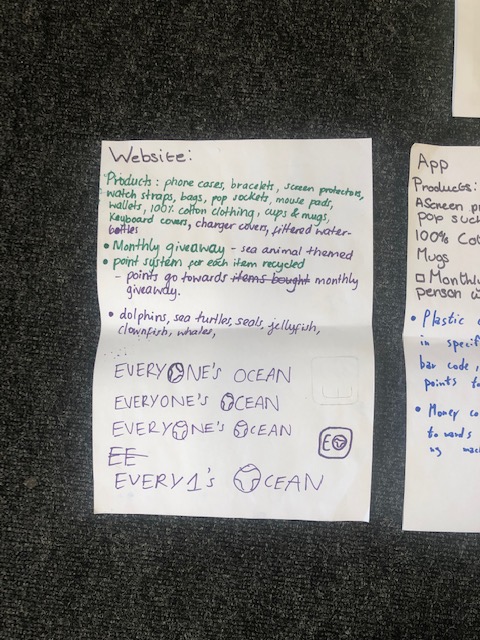 Website:
Products: phone cases, bracelets, screen protectors,
watch straps, bags, pop sockets, mouse pads,
wallets, 100% cotton clothing, cups & mugs,
Keyboard covers, charger covers, filtered water-
bottles
• Monthly giveaway - sea animal themed
• point system for each item recycled
- points go towards items bought monthly
giveaway.
• dolphins, sea turtles, seals, jellyfish,
clownfish, whales,
EVERYONE'S OCEAN
EVERYONE'S OCEAN
EVERYONE'S OCEAN
EO
EE
EVERY1's OCEAN
App
Products:
Screen p
pop
100% Co
Mugs
Monthl
person w
• Plastic
in specif
bar code,
points to
• Money co
towards